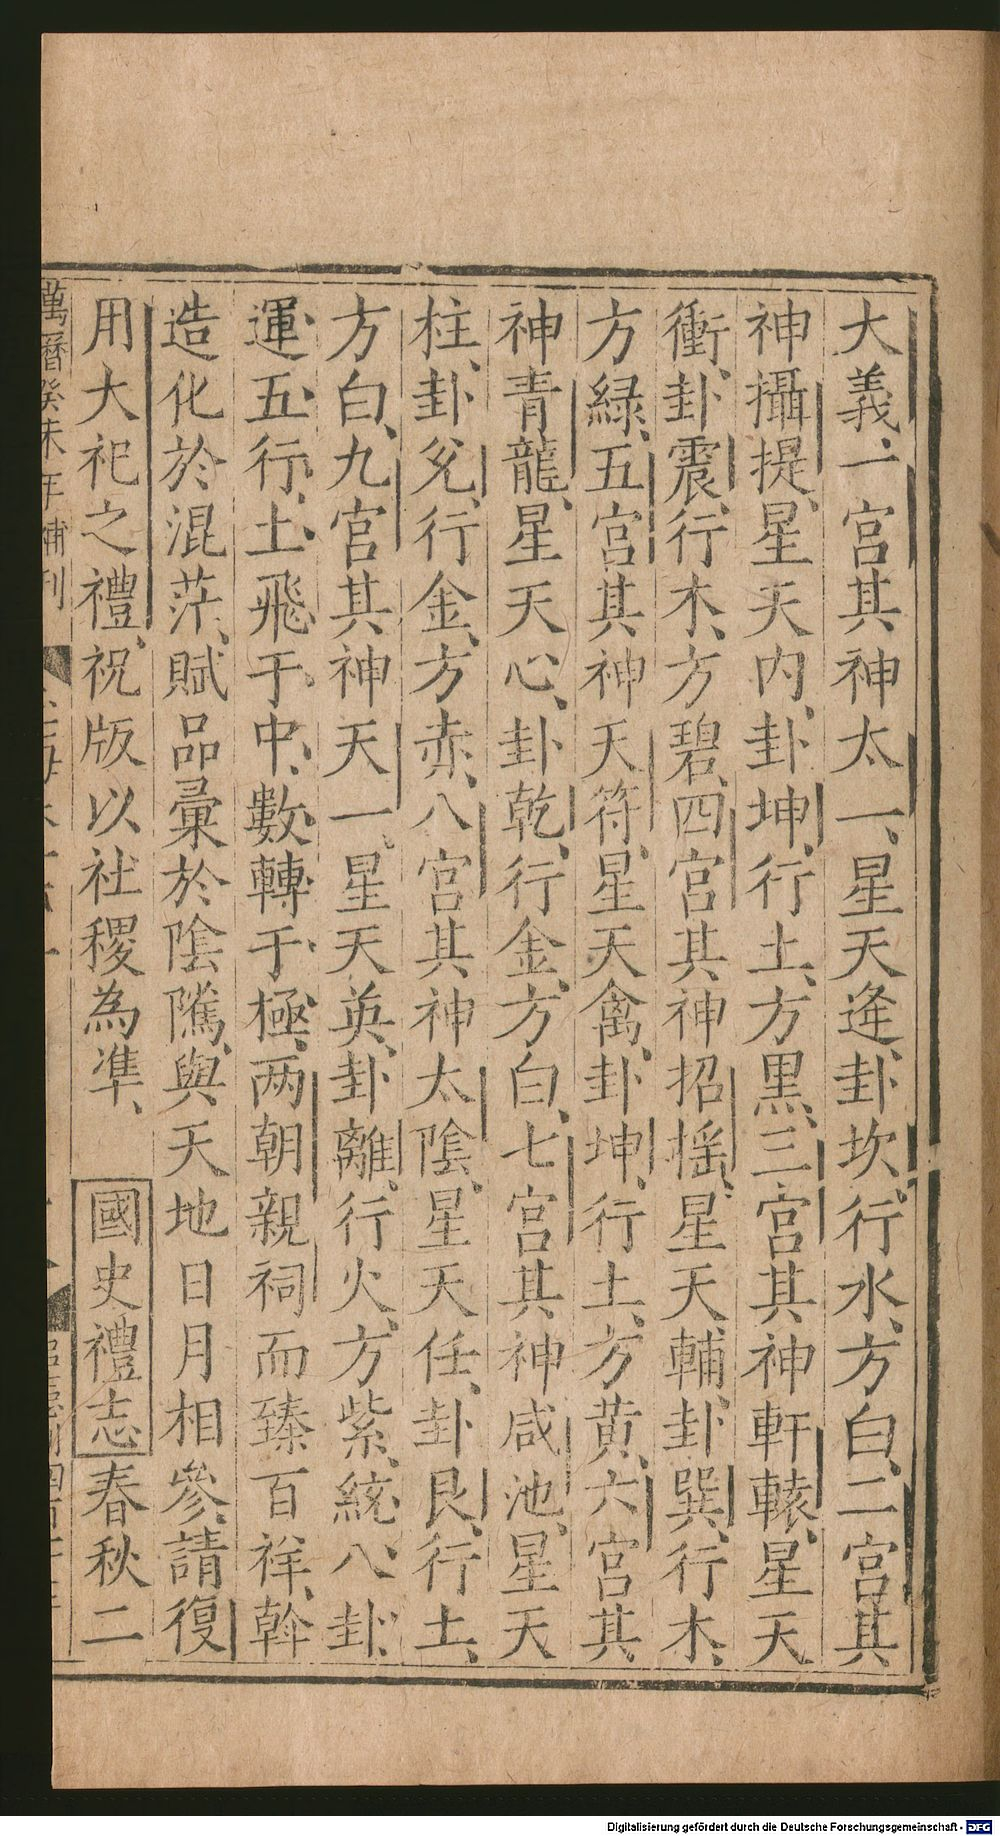 大義、一宮其神太一、星天逄、卦坎、行水、方白、二宮其
神攝提、星天内、卦坤、行土、方黒、三宮其神軒轅、星天
衝、卦震、行木、方碧、四宮其神招摇、星天輔、卦巽、行木、
方緑、五宮其神天符、星天禽、卦坤、行土、方黄、六宮其
神青龍、星天心、卦乾、行金、方白、七宮其神咸池、星天
柱、卦兊、行金、方赤、八宮其神太陰、星天任、卦艮、行土、
方白、九宮其神天一、星天英、卦離、行火、方紫、統八卦、
運五行、土飛于中、數轉于極、两朝親祠而臻百祥、斡
造化於混茫、賦品彙於陰隲、與天地日月相參、請復
用大祀之禮、祝版以社稷為凖、國史禮志春秋二
萬曆癸未年補刊
Digitalisierung gefördert durch die Deutsche Forschungsgemeinschaft - DFG